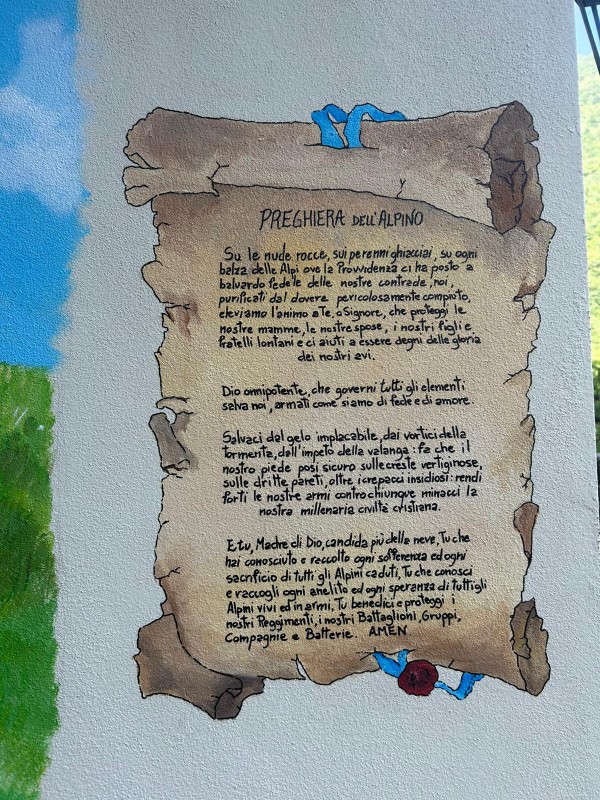 PREGHIERA DELL'ALPINO
Su le nude rocce, sui perenni ghiacciai, su ogni
balza delle Alpi ove la Provvidenza ci ha posto a
baluardo fedele delle nostre contrade, noi,
purificati dal dovere pericolosamente compiuto,
eleviamo l'animo a Te, o Signore, che proteggi le
nostre mamme, le nostre spose, i nostri figli e
fratelli lontani e ci aiuti a essere degni delle gloria
dei nostri avi.
Dio onnipotente, che governi tutti gli elementi
salva noi, armati come siamo di fede e di amore.
Salvaci dal gelo implacabile, dai vortici della
tormenta, dall'impeto della valanga: fa che il
nostro piede posi sicuro sulle creste vertiginose,
sulle dritte pareti, oltre i crepacci insidiosi: rendi
forti le nostre armi contro chiunque minacci la
nostra millenaria civiltà cristiana.
E tu, Madre di Dio, candida più della neve, Tu che
hai conosciuto e raccolto ogni sofferenza ed ogni
sacrificio di tutti gli Alpini caduti, Tu che conosci
e raccogli ogni anelito ed ogni speranza di tutti gli
Alpini vivi ed in armi, Tu benedici e proteggi i
nostri Reggimenti, i nostri Battaglioni, Gruppi,
Compagnie e Batterie. AMEN